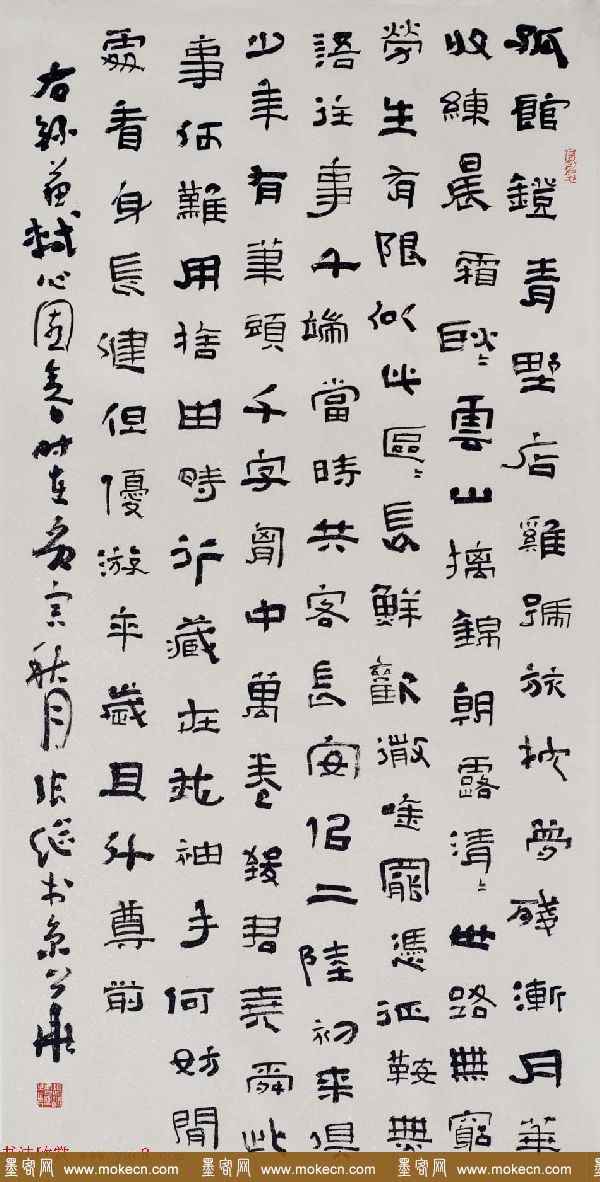 孤館鐙青野店雞號旅枕夢殘漸月華
收練晨霜耿〻雲山摛錦朝露清〻世路無窮
勞生有限似此區〻長鮮歡微唫罷憑征鞍無
語往事千端當時共客長安似二陸初來俱
少年有筆頭千字胸中萬卷致君堯舜此
事何難用捨由時行藏在我袖手何妨閒
處看身長健但優游卒歲且斗尊前
右録蘇軾心園春時在秋月張继书京
墨客网 www.mokecn.com 墨客网 www.mokecn.com 墨客网 www.mokecn.com